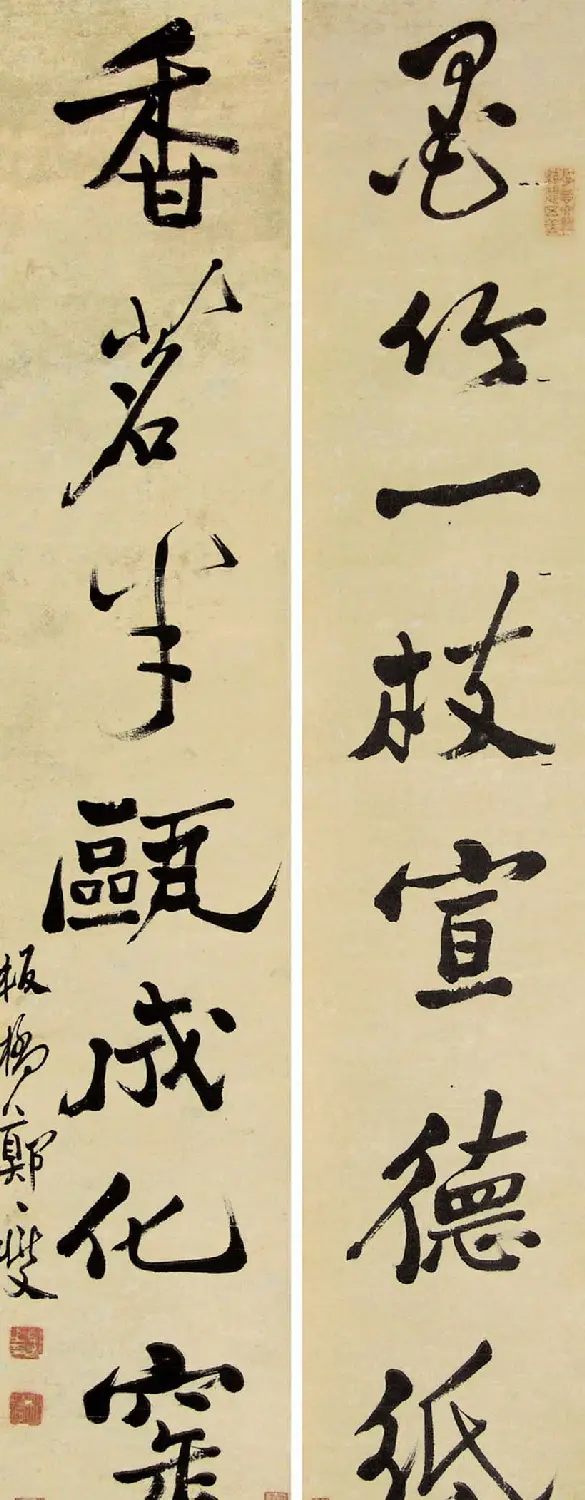 墨竹一枝宣德紙
香茗半甌成化窯
板橋鄭燮